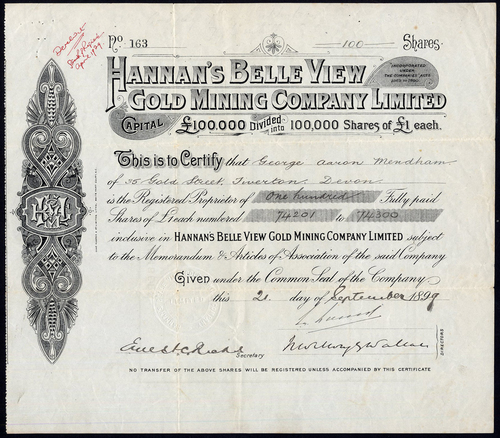 No 163 100 Shares.
April 1/29
HANNAN'S BELLE VIEW
GOLD MINING COMPANY LIMITED
INCORPORATED
UNDER
THE COMPANIES' ACTS
1862 TO 1890.
CAPITAL £100.000 Divided into 100,000 Shares of £1 each.
This is to Certify that George Aaron Mendham
of 35 Gold Street, Tiverton, Devon
is the Registered Proprietor of One hundred Fully paid
Shares of £1 each numbered 74201 to 74300
inclusive in HANNAN'S BELLE VIEW GOLD MINING COMPANY LIMITED subject
to the Memorandum & Articles of Association of the said Company
Given under the Common Seal of the Company
this 2 day of September 1899
Secretary
DIRECTORS
NO TRANSFER OF THE ABOVE SHARES WILL BE REGISTERED UNLESS ACCOMPANIED BY THIS CERTIFICATE